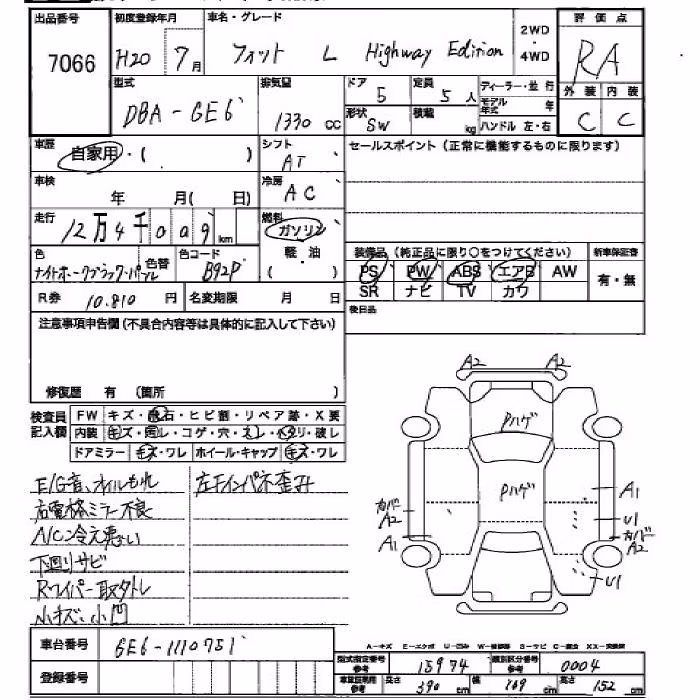 出品番号 初度登録年月 車名・グレード 2WD・4WD 評価点
7066 H20 7月 フィット L Highway Edition RA
型式 排気量 ドア 定員 ディーラー・並行 外装 内装
DBA-GE6 1330cc 5 5人 モデル年式 年 C C
形状 SW 積載 kg ハンドル 左・右
車歴 自家用・( ) シフト AT セールスポイント(正常に機能するものに限ります)
車検 年 月( 日) 冷房 AC
走行 12万4千009km 燃料 ガソリン 軽・油 ( )
色 ナイトホークブラックパール 色替 色コード B92P
装備品(純正品に限り○をつけてください) 新車保証書
PS PW ABS エアB AW 有・無
SR ナビ TV カワ
R券 10.810円 名変期限 月 日 後日品
注意事項申告欄(不具合内容等は具体的に記入して下さい)
修復歴 有 (箇所 )
検査員記入欄 FW キズ・飛石・ヒビ割・リペア跡・X要
内装 キズ・汚レ・コゲ・穴・スレ・ヘタリ・破レ
ドアミラー キズ・ワレ ホイール・キャップ キズ・ワレ
E/G音、オイルもれ 左Fインパネ歪み
右電格ミラー不良
A/C冷え悪い
下回リサビ
Rワイパー取外し
小キズ、小凹
A2 A2
Pハゲ
Pハゲ
カバーA2 A1
A1 U1 カバーA2 U1
A-キズ E-エクボ U-凹み W-補修跡 S-サビ C-腐食 XX-交換済
車台番号 GE6-1110751
登録番号
型式指定番号 参考 15974 類別区分番号 参考 0004
車庫証明用 参考 長さ 390cm 幅 169cm 高さ 152cm